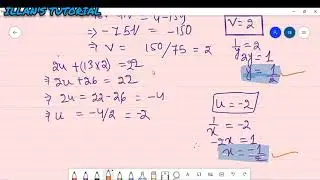 ILLAN'S TUTORIAL
⇒ -75V = -150
⇒ V = 150/75 = 2
2u + (13×2) = 22
⇒ 2u + 26 = 22
⇒ 2u = 22-26 = -4
⇒ u = -4/2 = -2
V = 2
1/y = 2
2y = 1
y = 1/2
u = -2
1/x = -2
-2x = 1
x = -1/2